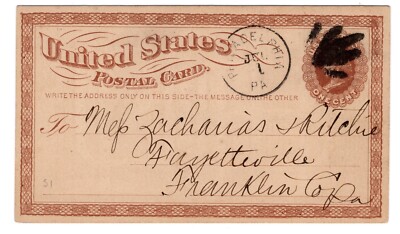 United States
Postal Card.
WRITE THE ADDRESS ONLY ON THIS SIDE-THE MESSAGE ON THE OTHER
PHILADELPHIA
1
PA
ONE CENT
To Mess Zacharias & Ritchie
Fayetteville
Franklin Co Pa